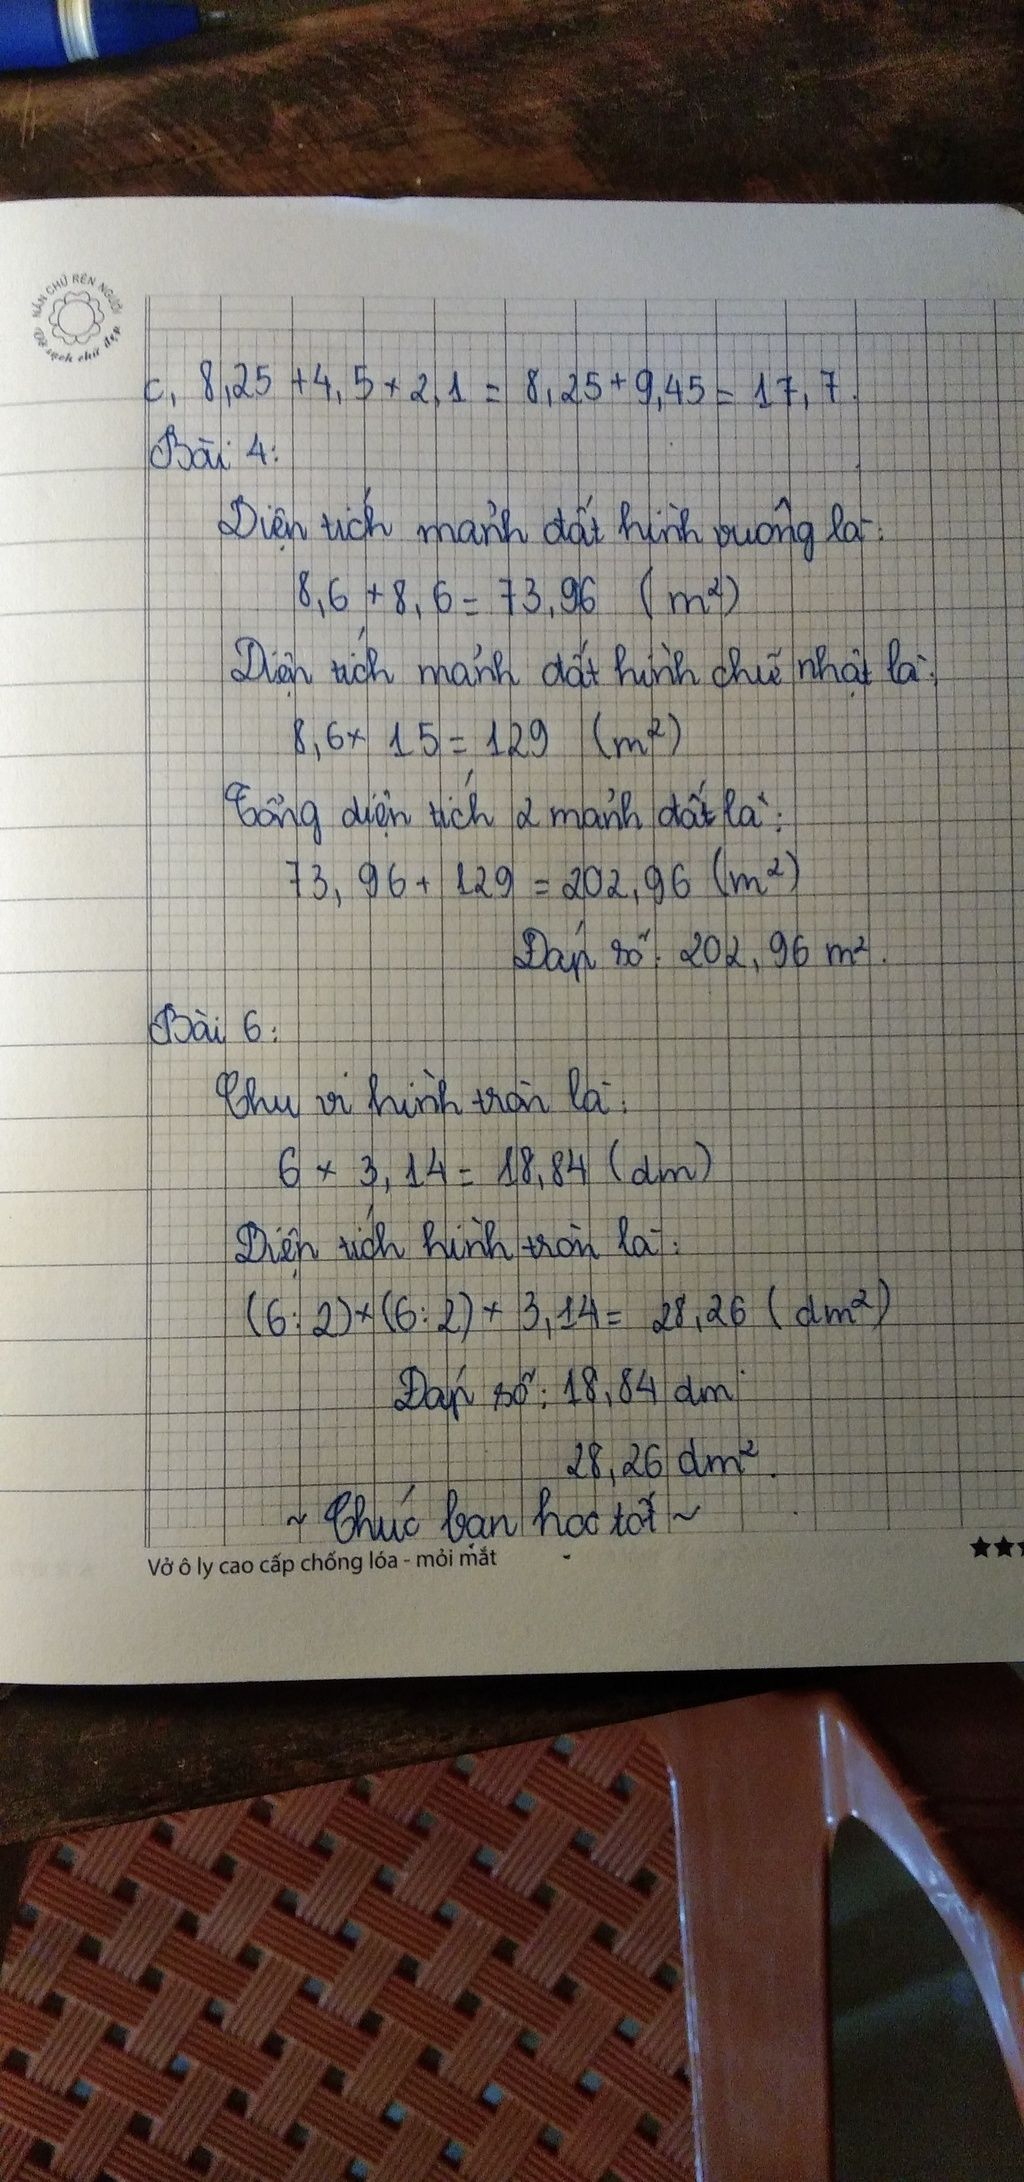 NẮN CHỮ RÈN NGƯỜI
Vở sạch chữ đẹp
c, 8,25 + 4,5 × 2,1 = 8,25 + 9,45 = 17,7.
Bài 4:
Diện tích mảnh đất hình vuông là:
8,6 + 8,6 = 73,96 (m²)
Diện tích mảnh đất hình chữ nhật là:
8,6 × 15 = 129 (m²)
Tổng diện tích 2 mảnh đất là:
73,96 + 129 = 202,96 (m²)
Đáp số: 202,96 m².
Bài 6:
Chu vi hình tròn là:
6 × 3,14 = 18,84 (dm)
Diện tích hình tròn là:
(6:2) × (6:2) × 3,14 = 28,26 (dm²)
Đáp số: 18,84 dm
28,26 dm².
~ Chúc bạn học tốt ~
Vở ô ly cao cấp chống lóa - mỏi mắt